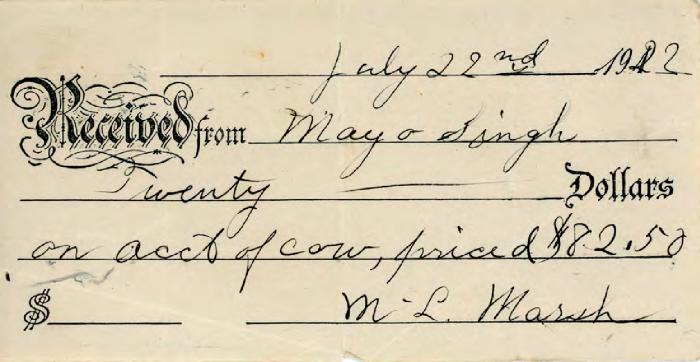 July 22nd 1922
Received from Mayo Singh
Twenty Dollars
on acct of cow, priced $82.50
$ M L. Marsh